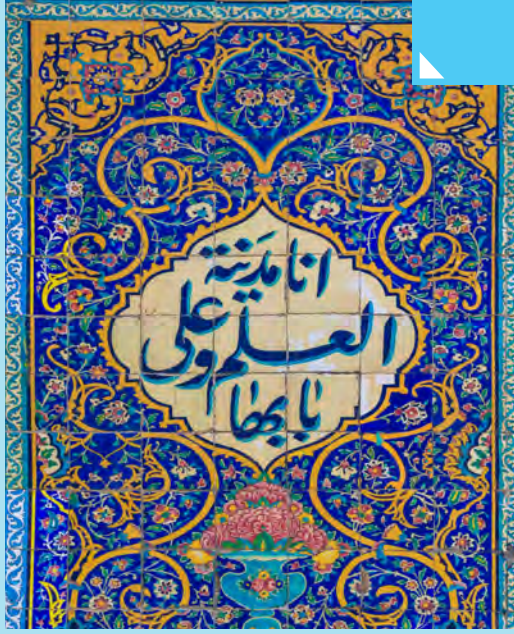 انا مدينة
العلم وعلى
بابها